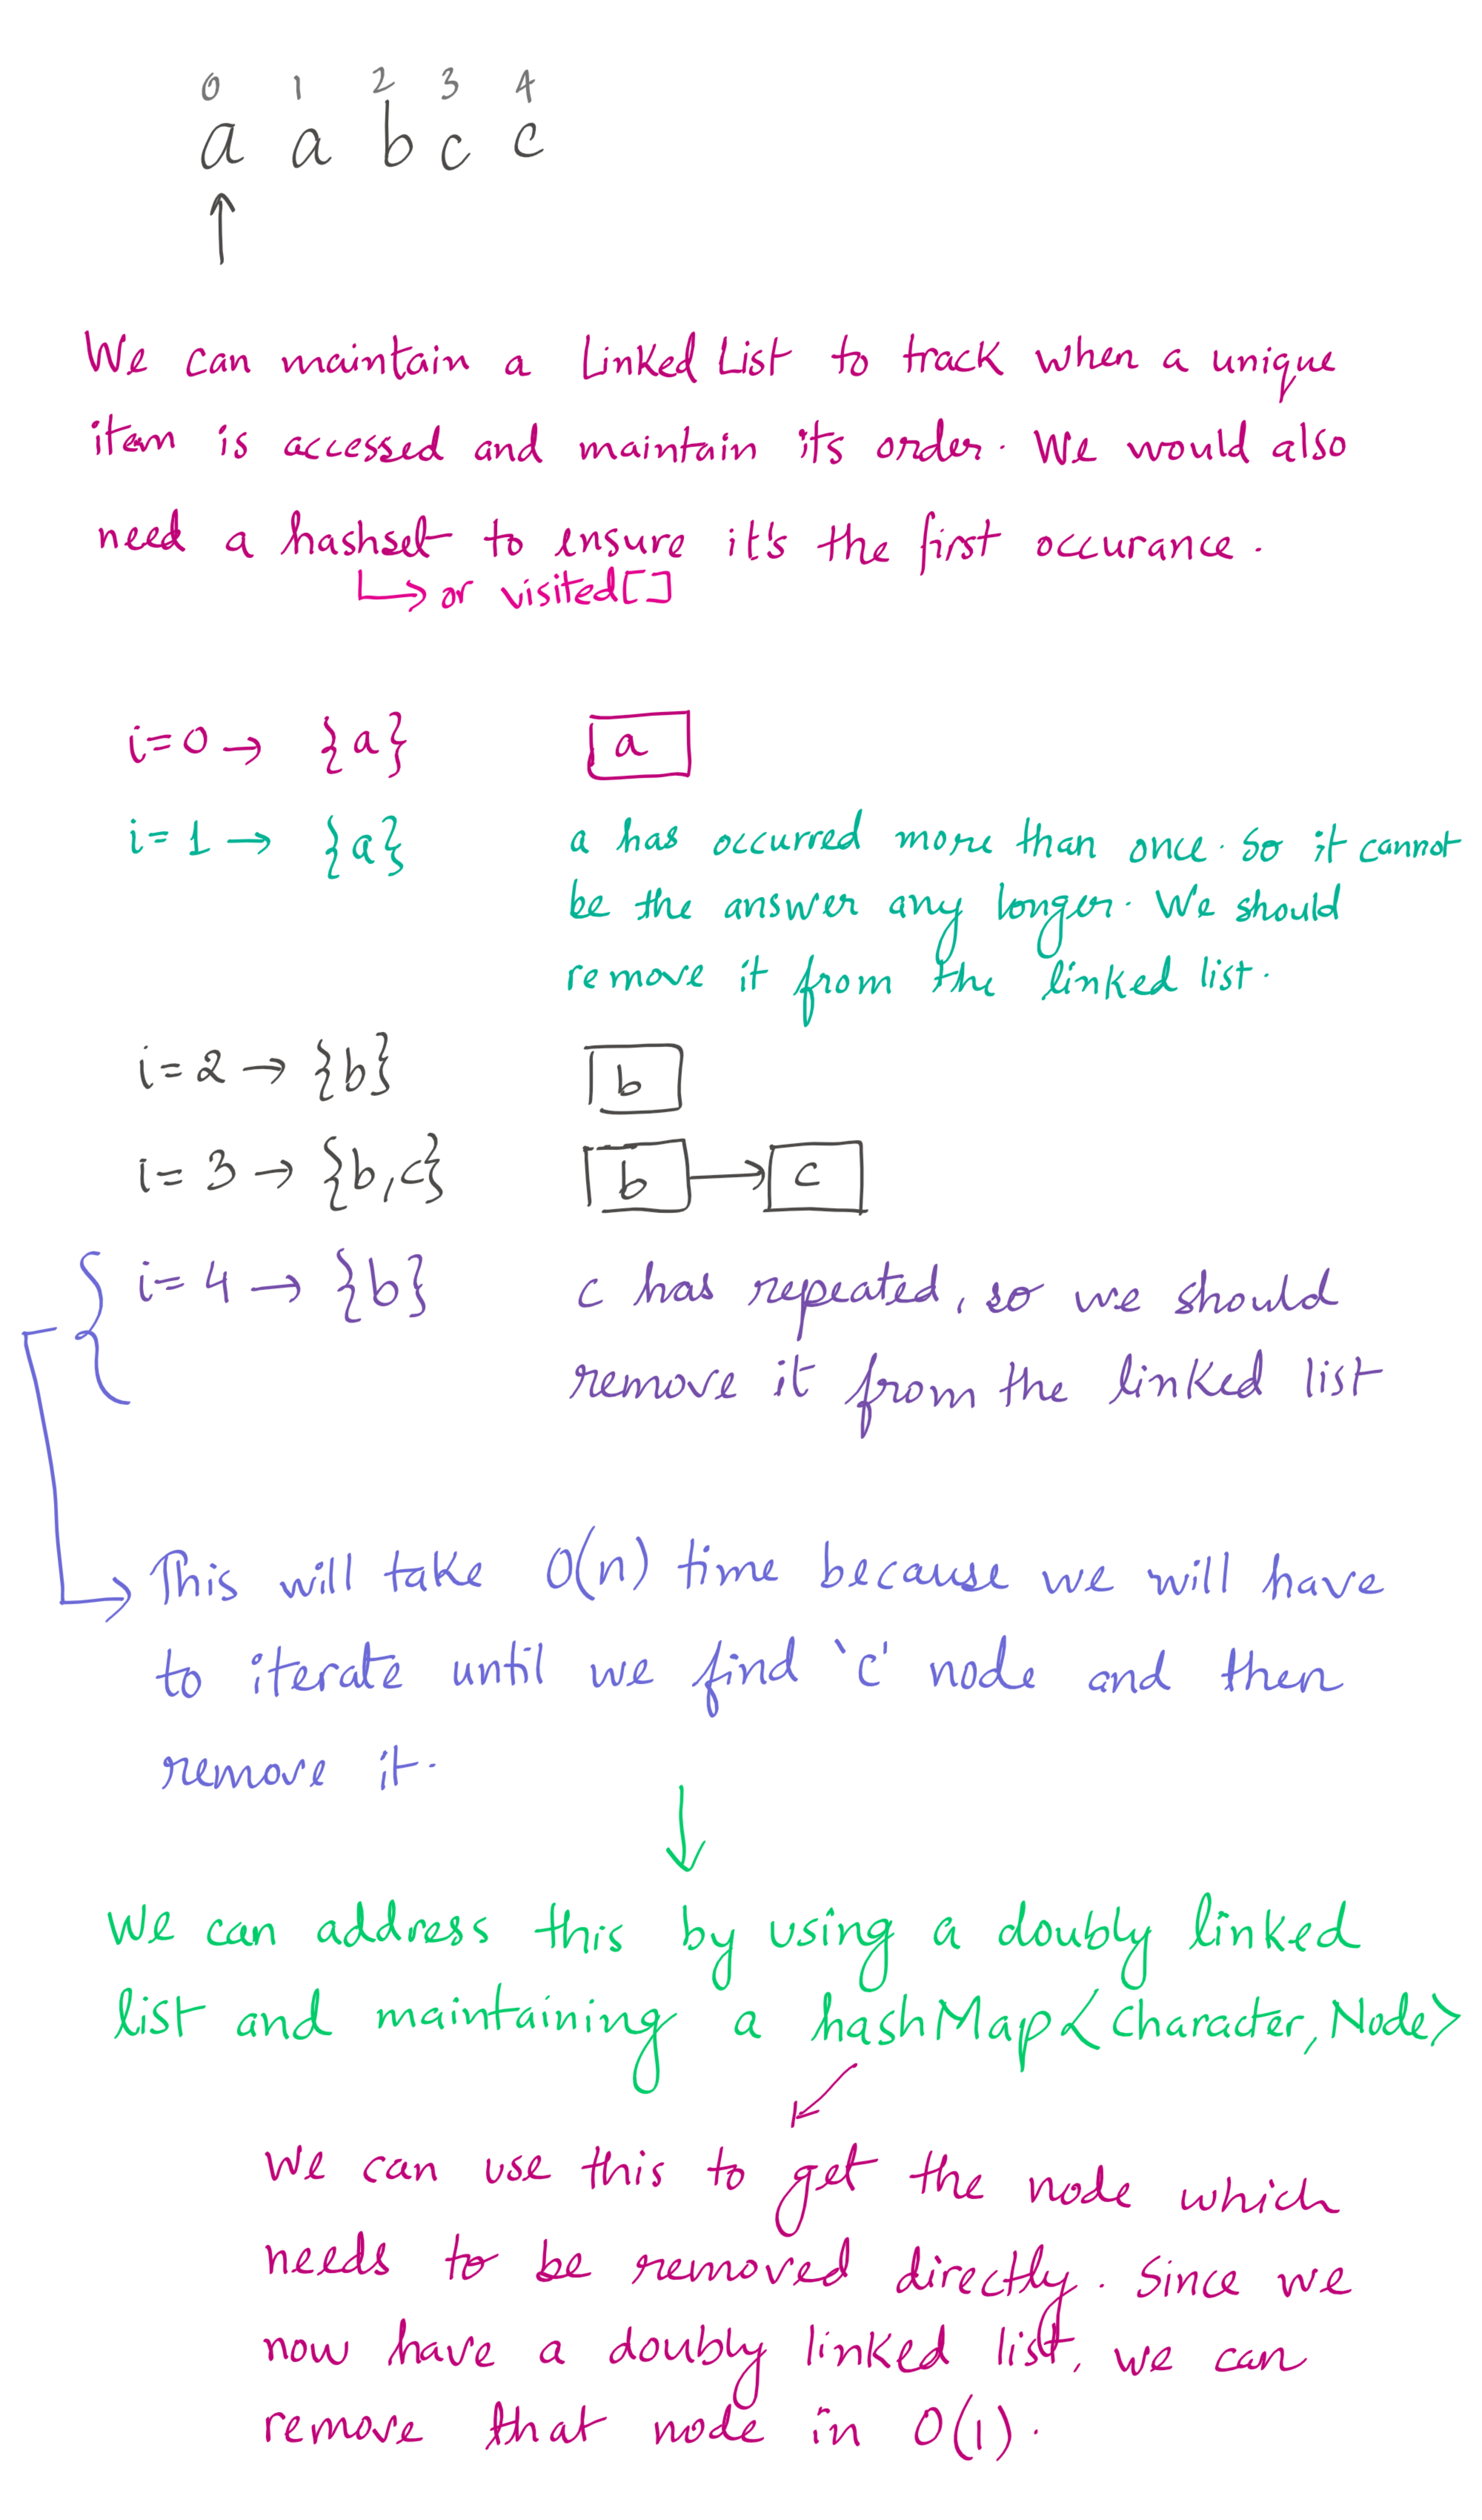 0 1 2 3 4
a a b c c
We can maintain a linked list to track when a unique
item is accessed and maintain its order. We would also
need a hashset to ensure it's the first occurance.
or visited[]
i=0→ {a} a
i=1→ {a} a has occurred more than once. So it cannot
be the answer any longer. We should
remove it from the linked list.
i=2→ {b} b
i=3→ {b,c} b → c
i=4→ {b} c has repeated, so we should
remove it from the linked list
This will take O(n) time because we will have
to iterate until we find 'c' node and then
remove it.
We can address this by using a doubly linked
list and maintaining a hashMap<Character, Node>
We can use this to get the node which
needs to be removed directly. Since we
now have a doubly linked list, we can
remove that node in O(1).